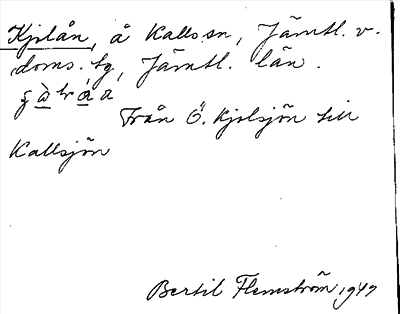 Kjolån, å Kalls sn, Jämtl. v.
doms. tg, Jämtl. län.
Från Ö. Kjolsjön till
Kallsjön
Bertil Flemström 1947